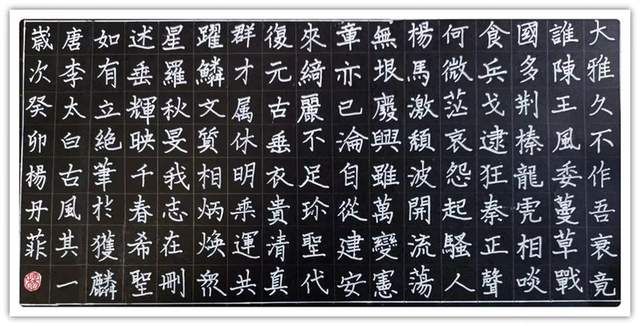 大雅久不作吾衰竟
誰陳王風委蔓草戰
國多荆榛龍虎相啖
食兵戈逮狂秦正聲
何微茫哀怨起騷人
楊馬激頹波開流蕩
無垠廢興雖萬變憲
章亦已淪自從建安
來綺麗不足珎聖代
復元古垂衣貴清真
群才属休明乘運共
躍鱗文質相炳煥眾
星羅秋旻我志在刪
述垂輝映千春希聖
如有立絕筆於獲麟
唐李太白古風其一
歲次癸卯楊丹菲